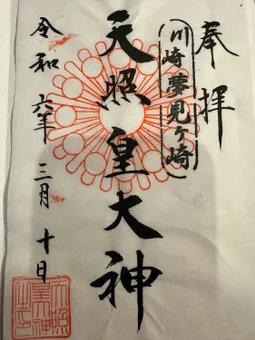 奉拝
(川崎夢見ヶ崎)
天照皇大神
令和六年三月十日